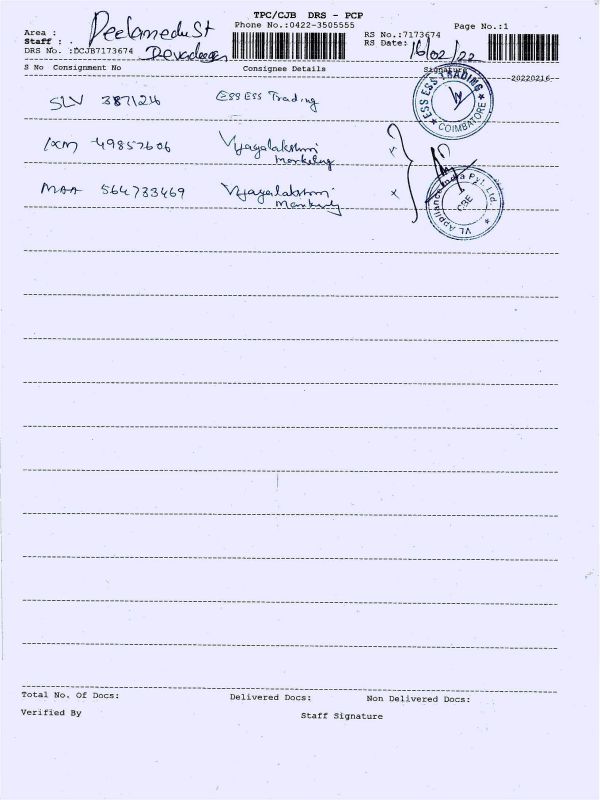 TPC/CJB DRS - PCP
Phone No.:0422-3505555
Page No.:1
Area : Peelamedu St
Staff :
DRS No. :DCJB7173674
RS No.:7173674
RS Date: 16/02/22
S No Consignment No Consignee Details Signature
20220216
SLV 387126 ESS ESS Trading
ESS ESS TRADING
COIMBATORE
IXM 49857606 Vijayalakshmi
Marketing
MAA 564733469 Vijayalakshmi
Marketing
VL Appliance India Pvt. Ltd.
CBE
Total No. Of Docs: Delivered Docs: Non Delivered Docs:
Verified By Staff Signature